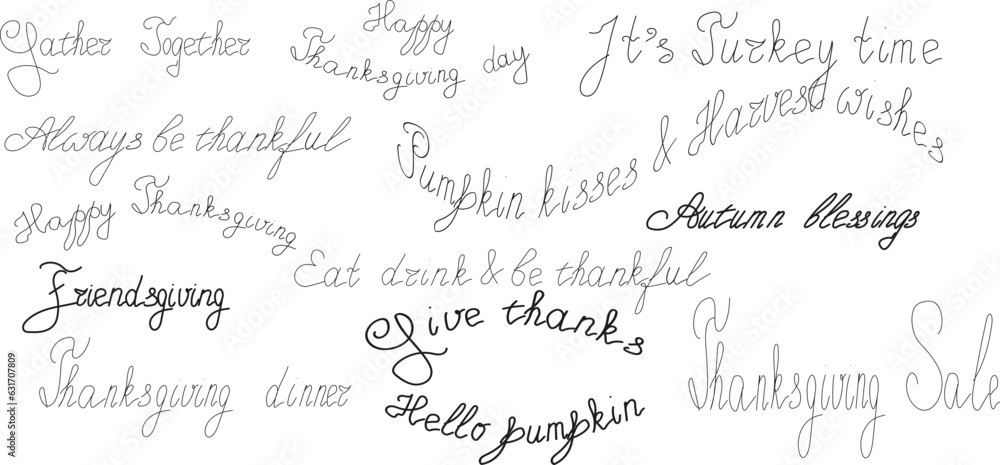 Gather Together
Happy
Thanksgiving day
It's Turkey time
Always be thankful
Pumpkin kisses & Harvest wishes
Happy Thanksgiving
Autumn blessings
Eat drink & be thankful
Friendsgiving
Give thanks
Thanksgiving dinner
Thanksgiving Sale
Hello pumpkin
Adobe Stock | #631707809